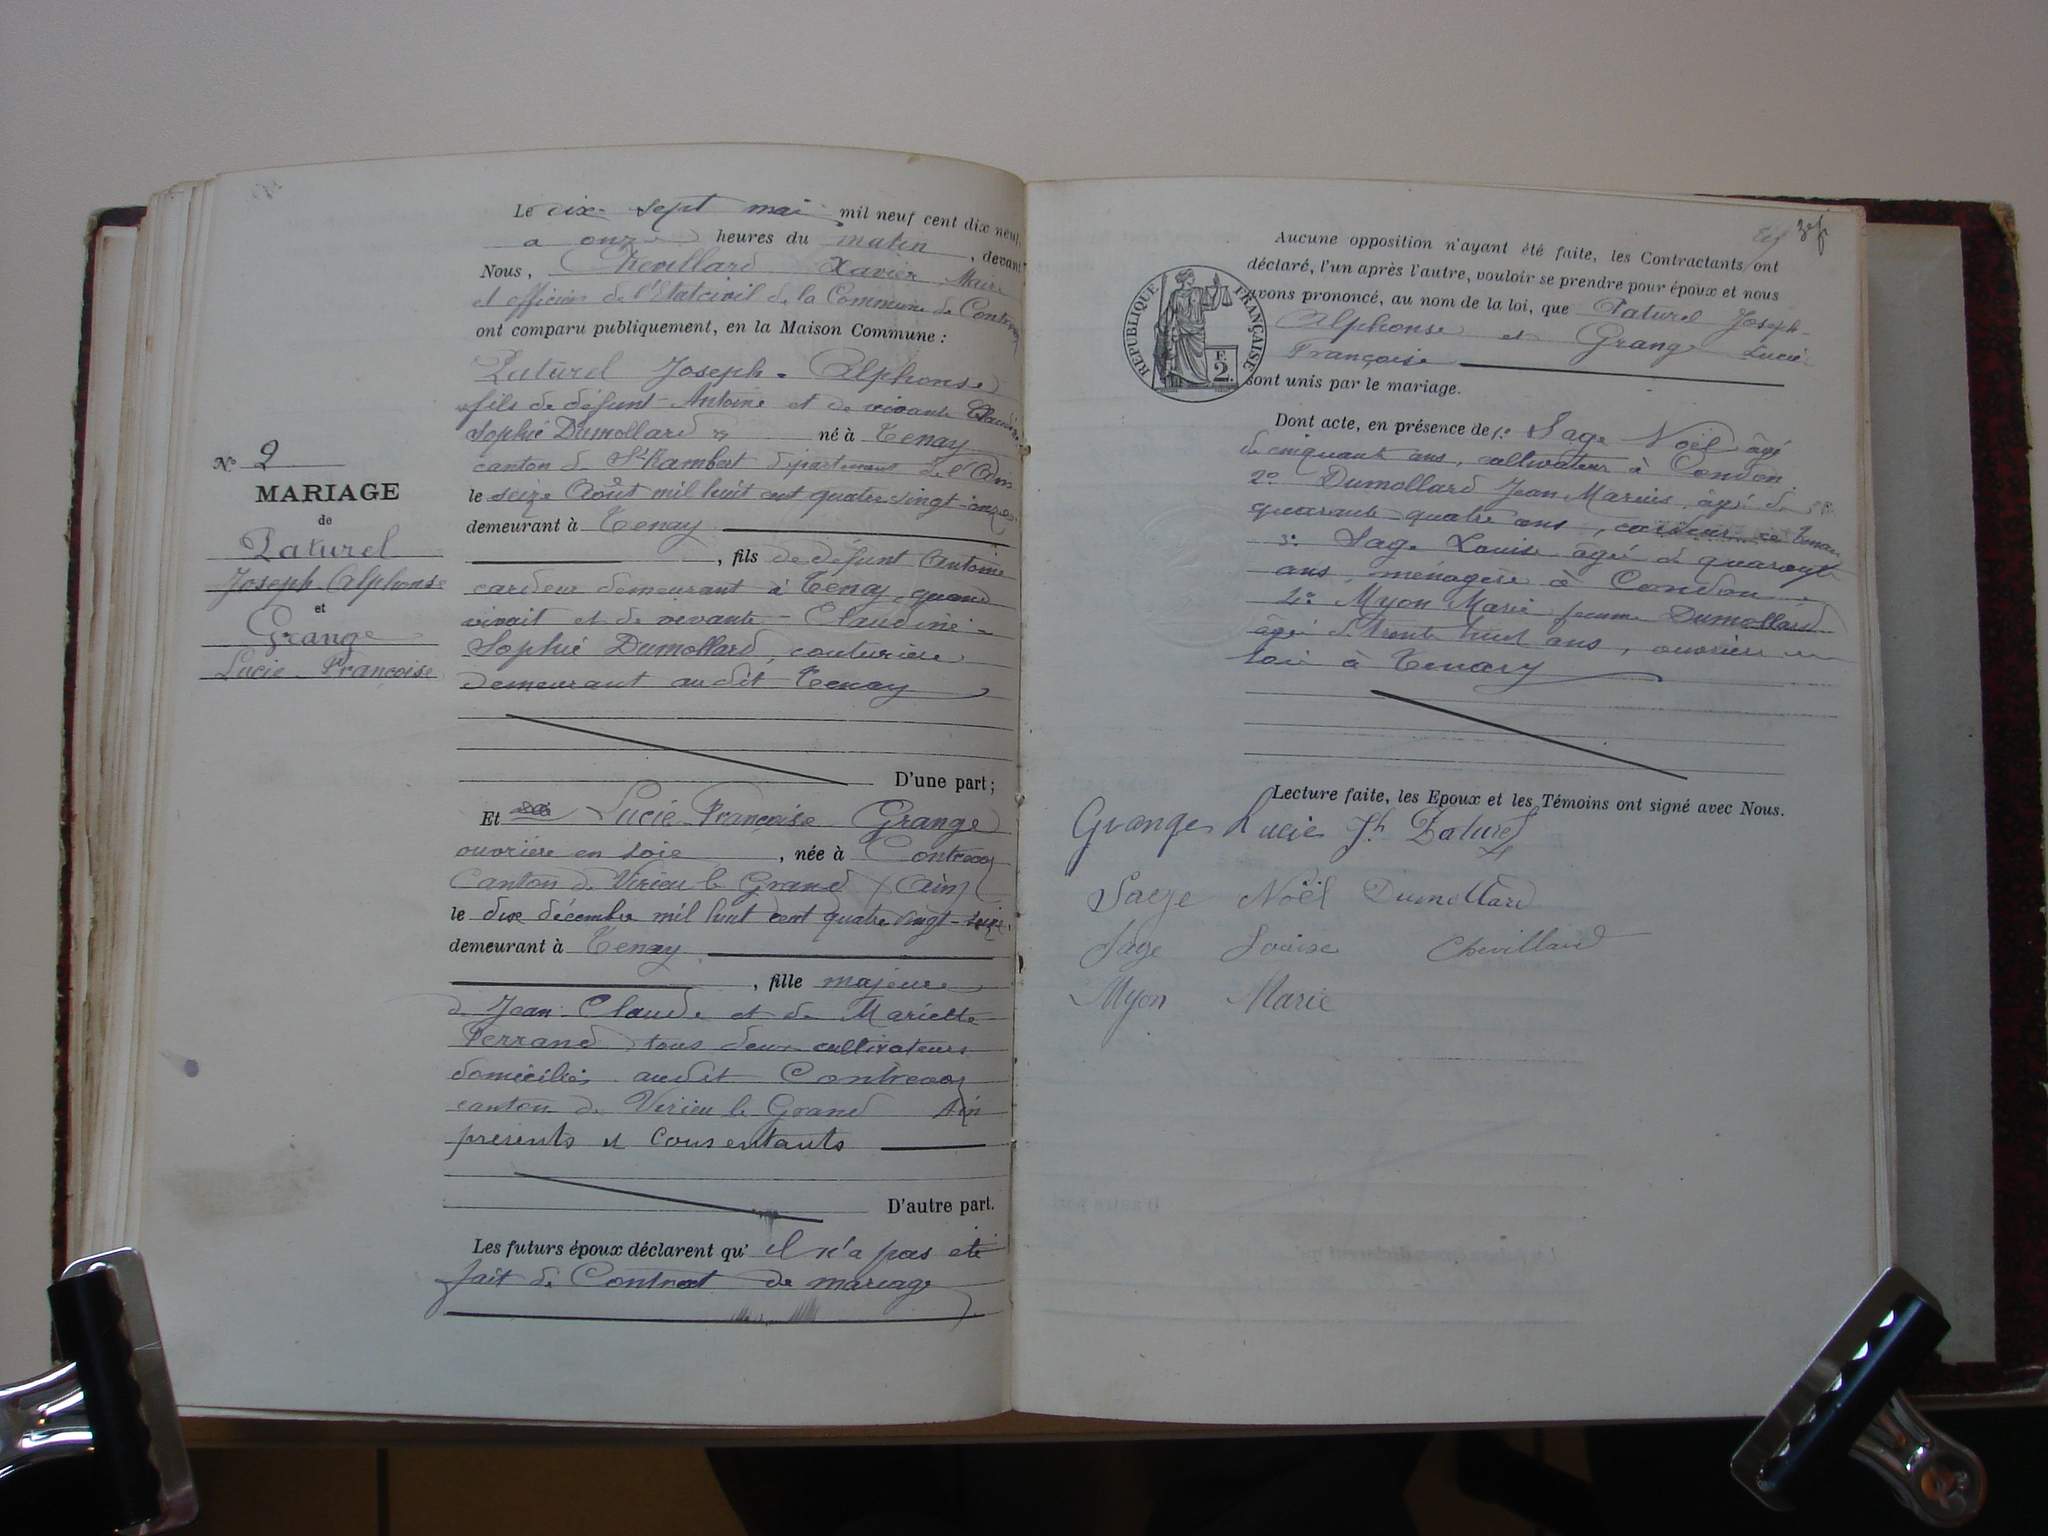 Le dix-sept mai mil neuf cent dix neuf,
a onze heures du matin, devant
Nous, Chevillard Xavier Maire
et officier de l'Etat civil de la Commune de Contrevoz
ont comparu publiquement, en la Maison Commune :
Paturel Joseph-Alphonse
fils de défunt Antoine et de vivante Claudine
Sophie Dumollard né à Tenay
canton de St Rambert département de l'Ain
le seize Août mil huit cent quatre vingt-onze
demeurant à Tenay
, fils de défunt Antoine
cardeur demeurant à Tenay quand
vivait et de vivante - Claudine -
Sophie Dumollard, couturière
demeurant au dit Tenay
D'une part ;
Et Lucie Françoise Grange
ouvrière en soie , née à Contrevoz
Canton de Virieu le Grand (Ain)
le dix décembre mil huit cent quatre vingt-seize,
demeurant à Tenay
, fille majeure
de Jean Claude et de Mariette
Ferrand tous deux cultivateurs
domiciliés audit Contrevoz
canton de Virieu le Grand Ain
présents et consentants
D'autre part.
Les futurs époux déclarent qu' il n'a pas été
fait de Contrat de mariage
No 2
MARIAGE
de
Paturel
Joseph-Alphonse
et
Grange
Lucie-Françoise
Aucune opposition n'ayant été faite, les Contractants ont
déclaré, l'un après l'autre, vouloir se prendre pour époux et nous
avons prononcé, au nom de la loi, que Paturel Joseph-
Alphonse et Grange Lucie
Françoise
sont unis par le mariage.
REPUBLIQUE FRANÇAISE
F.
2.
Dont acte, en présence de 1o Sage Noël âgé
de cinquante ans, cultivateur à Condon.
2o Dumollard Jean Marius, âgé de
quarante-quatre ans, cardeur à Tenay
3o Sage Louise âgée de quarante
ans, ménagère à Condon
4o Myon Marie femme Dumollard
âgée de trente huit ans, ouvrière en
soie à Tenay
Lecture faite, les Epoux et les Témoins ont signé avec Nous.
Grange Lucie Jh. Paturel
Sage Noël Dumollard
Sage Louise Chevillard
Myon Marie